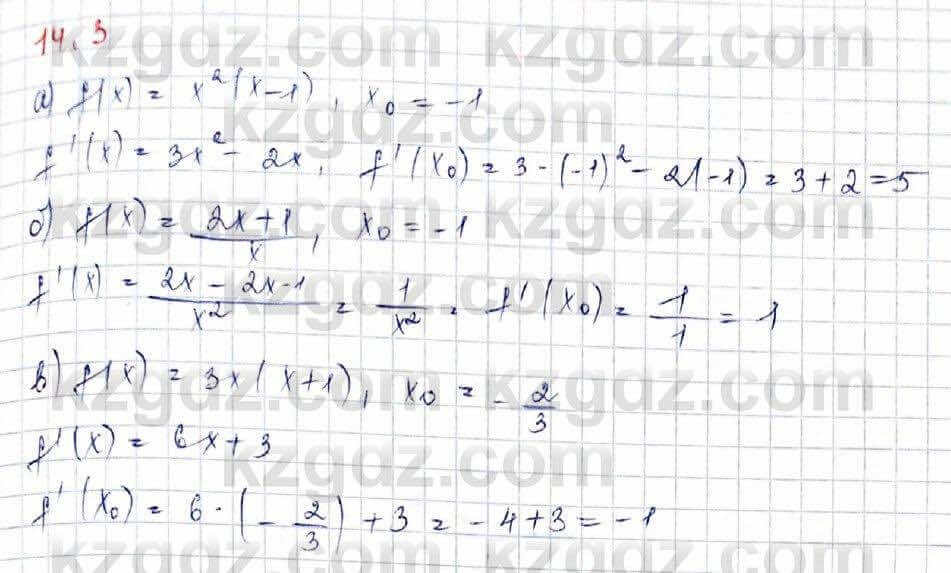 14.3
а) f(x) = x²(x-1), x₀ = -1
f'(x) = 3x² - 2x, f'(x₀) = 3·(-1)² - 2(-1) = 3+2=5
б) f(x) = (2x+1)/x, x₀ = -1
f'(x) = (2x-2x-1)/x² = 1/x² = f'(x₀) = 1/1 = 1
в) f(x) = 3x(x+1), x₀ = -2/3
f'(x) = 6x+3
f'(x₀) = 6·(-2/3)+3 = -4+3=-1
kzgdz.com kzgdz.com
kzgdz.com
kzgdz.com kzgdz.com
kzgdz.com
kzgdz.com kzgdz.com
kzgdz.com